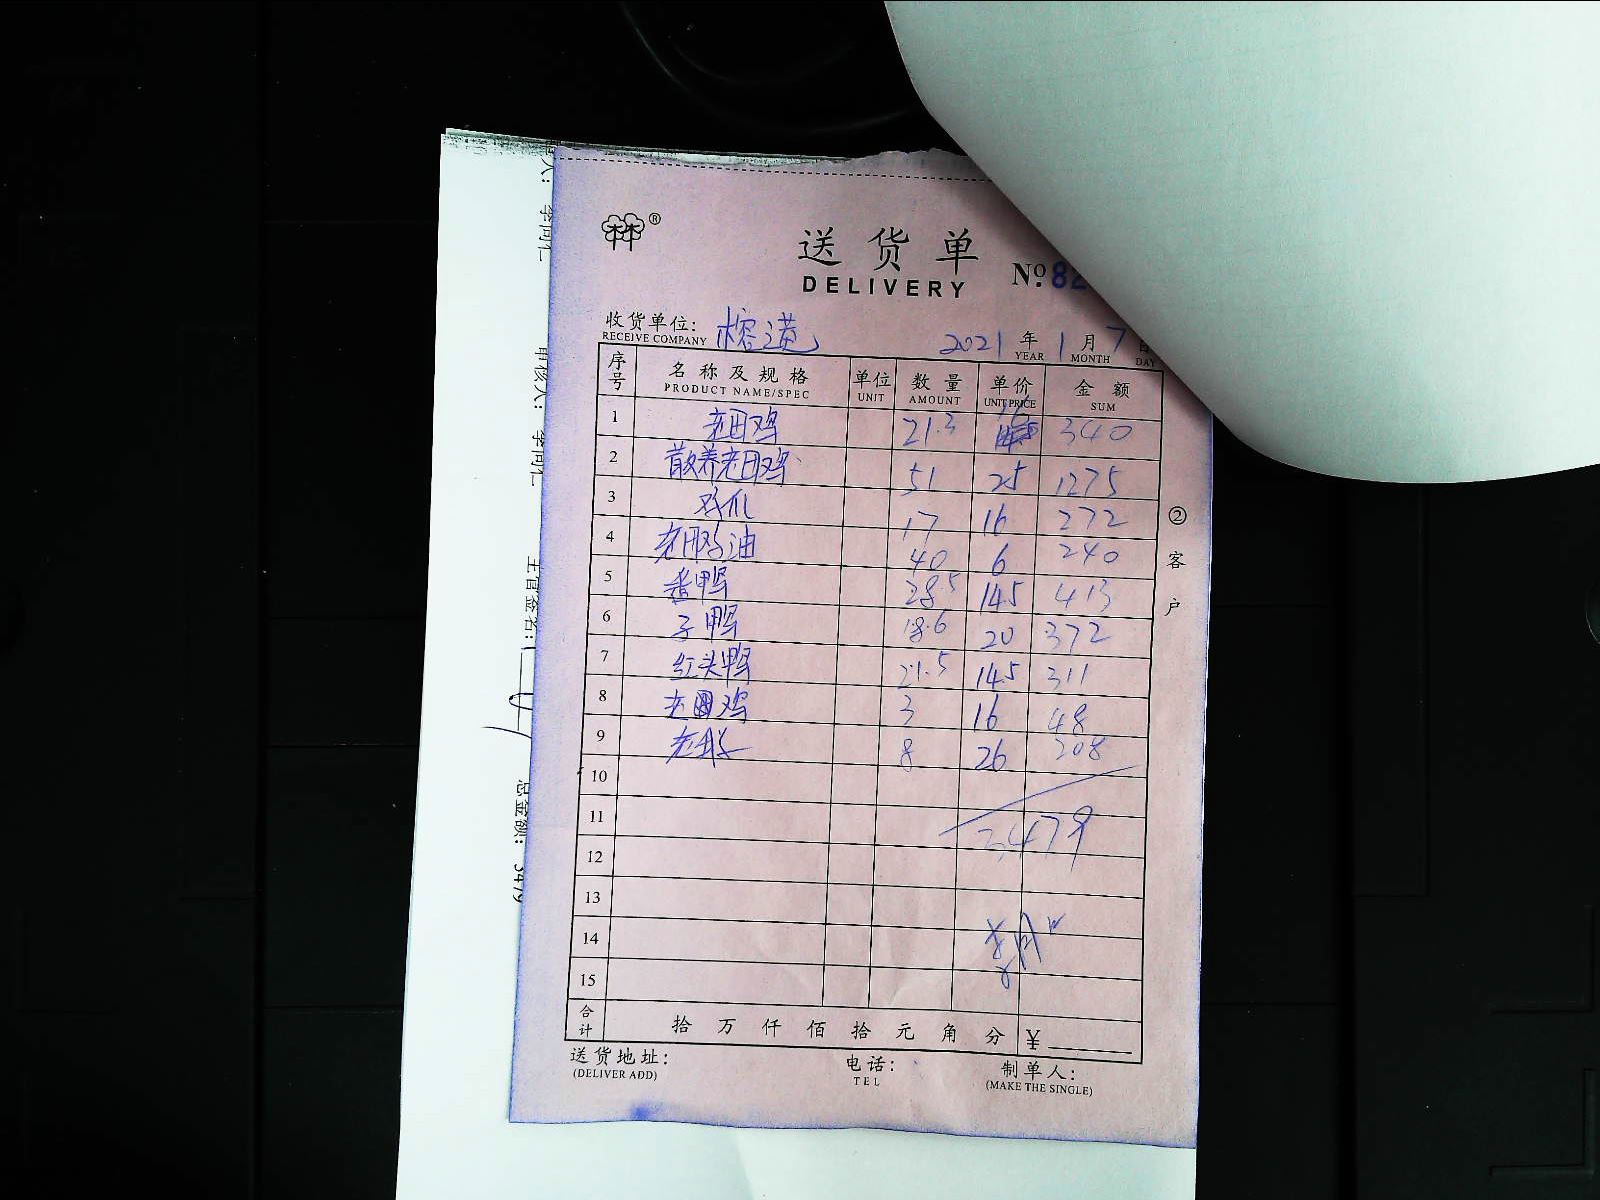 送货单
DELIVERY
No. 82
收货单位: 榕
RECEIVE COMPANY
2021 年 1 月 7 日
YEAR MONTH DAY
序号 名称及规格 单位 数量 单价 金额
PRODUCT NAME/SPEC UNIT AMOUNT UNIT PRICE SUM
1 老田鸡 21.3 16 340
2 散养老田鸡 51 25 1275
3 鸡爪 17 16 272
4 老田鸡油 40 6 240
5 番鸭 28.5 14.5 413
6 子鸭 18.6 20 372
7 红头鸭 21.5 14.5 311
8 老田鸡 3 16 48
9 老 8 26 208
10
11 3479
12
13
14
15
合计 拾 万 仟 佰 拾 元 角 分 ¥
送货地址: 电话: 制单人:
(DELIVER ADD) TEL (MAKE THE SINGLE)
②客户
李同仁
审核人: 李同仁
主管签名:
总金额: 3479